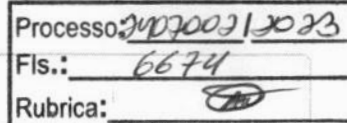 Processo: 2407002 | 2023
Fls.: 6674
Rubrica: